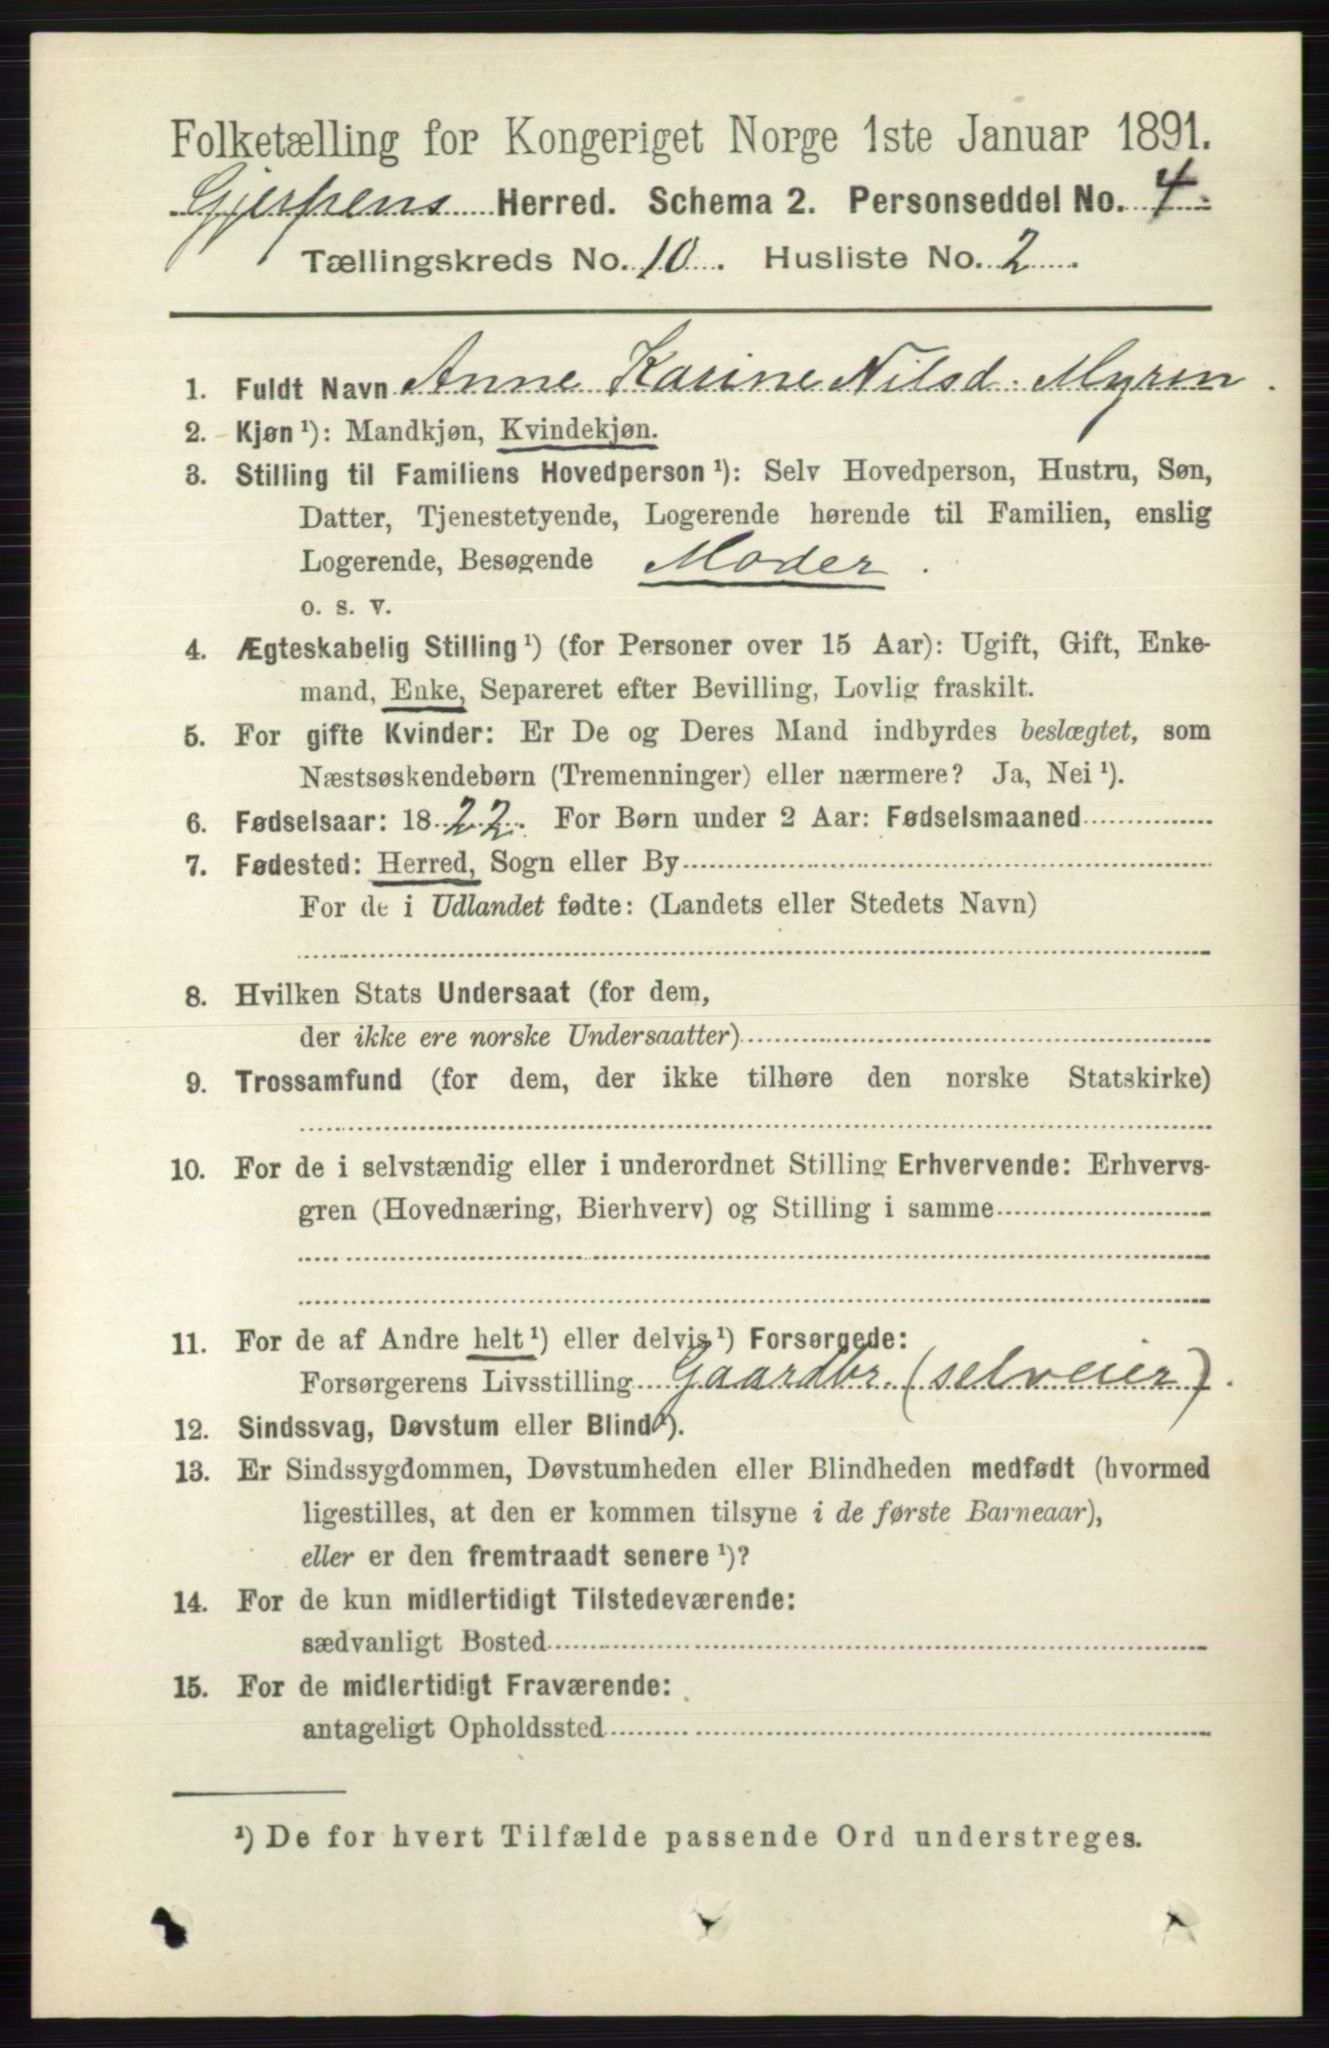 Folketælling for Kongeriget Norge 1ste Januar 1891.
Gjerpens Herred. Schema 2. Personseddel No. 4.
Tællingskreds No. 10. Husliste No. 2.
1. Fuldt Navn Anne Karine Nilsd. Myren.
2. Kjøn ¹): Mandkjøn, Kvindekjøn.
3. Stilling til Familiens Hovedperson ¹): Selv Hovedperson, Hustru, Søn,
Datter, Tjenestetyende, Logerende hørende til Familien, enslig
Logerende, Besøgende Moder.
o. s. v.
4. Ægteskabelig Stilling ¹) (for Personer over 15 Aar): Ugift, Gift, Enke-
mand, Enke, Separeret efter Bevilling, Lovlig fraskilt.
5. For gifte Kvinder: Er De og Deres Mand indbyrdes beslægtet, som
Næstsøskendebørn (Tremenninger) eller nærmere? Ja, Nei ¹).
6. Fødselsaar: 1822. For Børn under 2 Aar: Fødselsmaaned
7. Fødested: Herred, Sogn eller By
For de i Udlandet fødte: (Landets eller Stedets Navn)
8. Hvilken Stats Undersaat (for dem,
der ikke ere norske Undersaatter)
9. Trossamfund (for dem, der ikke tilhøre den norske Statskirke)
10. For de i selvstændig eller i underordnet Stilling Erhvervende: Erhvervs-
gren (Hovednæring, Bierhverv) og Stilling i samme
11. For de af Andre helt ¹) eller delvis ¹) Forsørgede:
Forsørgerens Livsstilling Gaardbr. (selveier).
12. Sindssvag, Døvstum eller Blind ¹).
13. Er Sindssygdommen, Døvstumheden eller Blindheden medfødt (hvormed
ligestilles, at den er kommen tilsyne i de første Barneaar),
eller er den fremtraadt senere ¹)?
14. For de kun midlertidigt Tilstedeværende:
sædvanligt Bosted
15. For de midlertidigt Fraværende:
antageligt Opholdssted
¹) De for hvert Tilfælde passende Ord understreges.